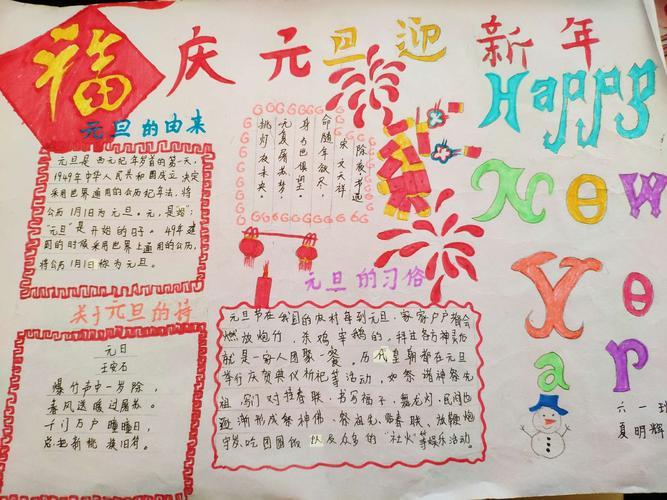 福
庆元旦迎新年
Happy
New
Year
元旦的由来
元旦是西元纪年岁首的第一天,
1949年中华人民共和国成立决定
采用世界通用的公历纪年法,将
公历1月1日为元旦。元,是始;
"元旦"是开始的日子。49年建
国的时候采用世界上通用的公历,
将公历1月1日称为元旦。
除夜
宋 文天祥
命随年欲尽,
身与世俱忘;
无复屠苏梦,
挑灯夜未央。
关于元旦的诗
元日
王安石
爆竹声中一岁除,
春风送暖
千门万户曈曈日,
总把新桃换旧符。
元旦的习俗
元旦节在我国的农村每到元旦,家家户户都会
燃放炮竹,杀鸡宰鹅的,拜过各方神灵后
就是一家人团聚一餐,历代皇朝都在元旦
举行庆贺典仪祈祀等活动,如祭诸神祭先
祖,写门对挂春联,书写福字,舞龙灯,民间也
逐渐形成祭神佛、祭祖先、贴春联、放鞭炮
守岁、吃团圆饭以及众多的"社火"等娱乐活动。
六一班
夏明辉